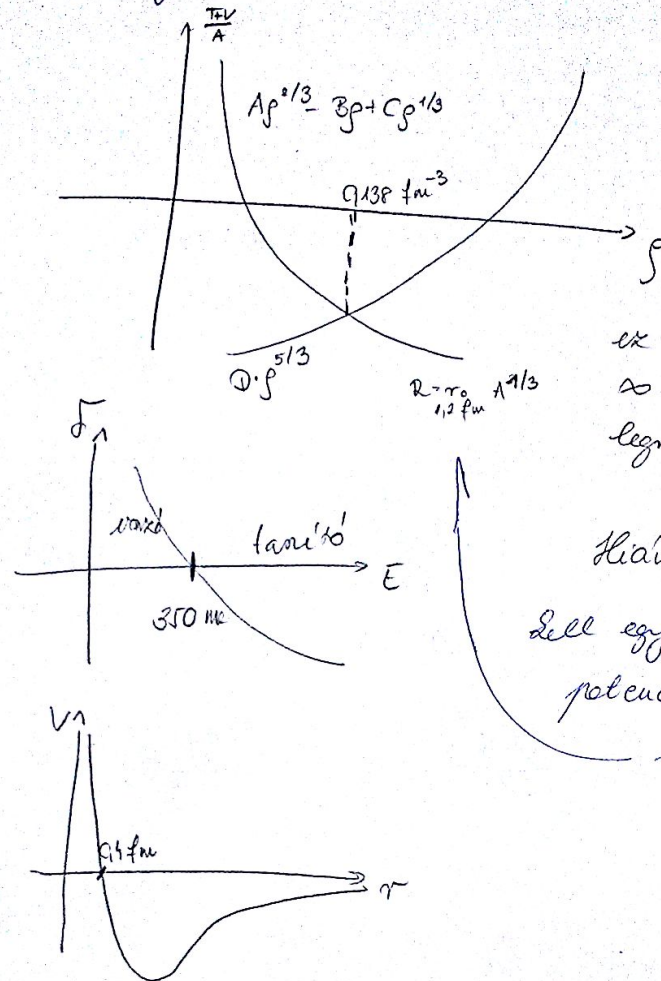 T+V
A
Aρ^2/3 - Bρ + Cρ^1/3
0,138 fm^-3
ρ
D·ρ^5/3
R = r₀ A^1/3
1,2 fm
ez
∞
legn
δ
vonzó
taszító
E
350 M
Hián
Kell egy
potenc
V
0,4 fm
r